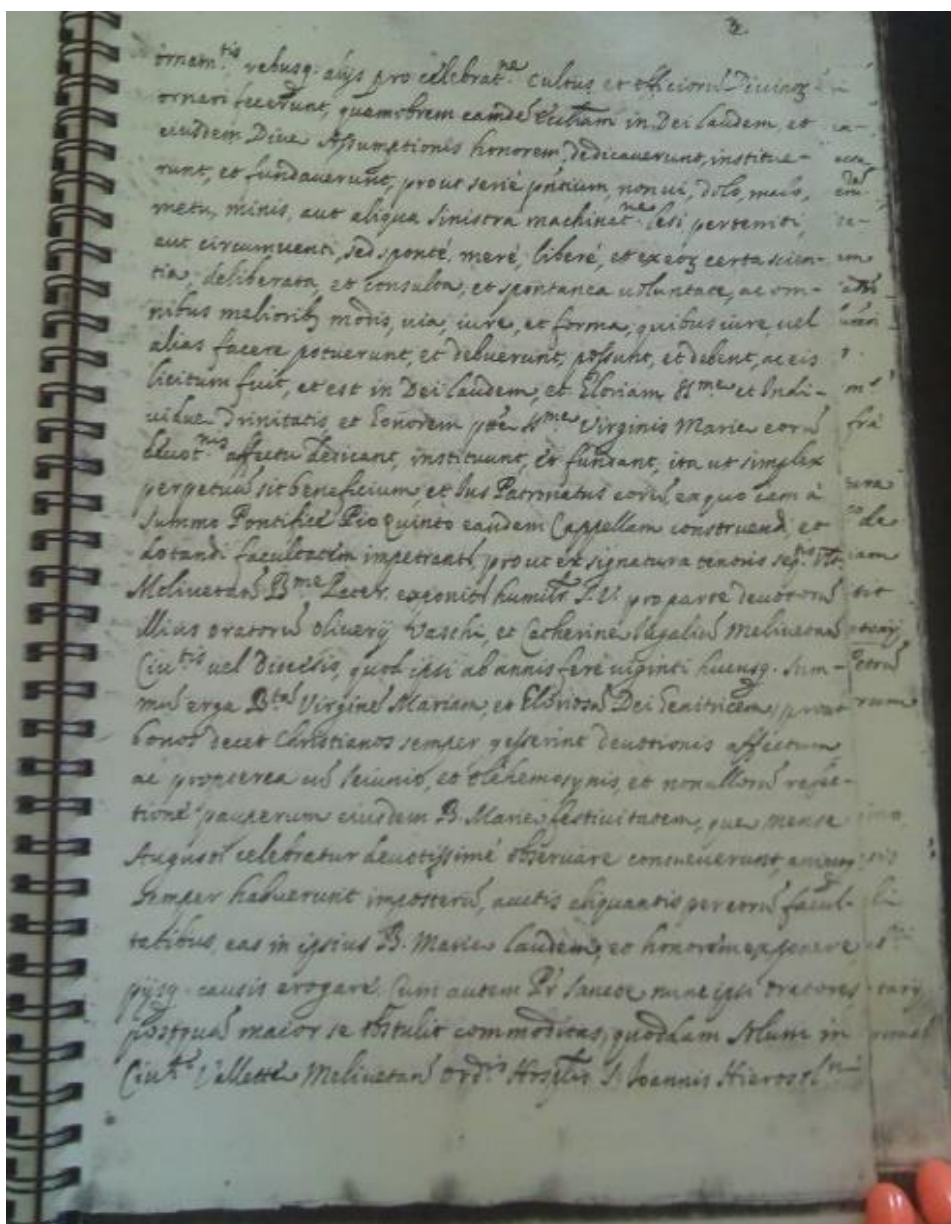 ornam.tis rebusq. alijs pro celebrat.ne Cultus et officiorũ Diuinoȝ
ornari fecerunt, quamobrem eamdẽ Ecclãm in Dei laudem, et
eiusdem Diue Assumptionis honorem, dedicauerunt, institue-
runt, et fundauerũt, prout serie pñtium, non ui, dolo, malo,
metu, minis, aut aliqua sinistra machinat.ne
aut circumuenti, sed sponté, meré, liberé, et ex eoȝ certa scien-
tia, deliberata, et consulta, et spontanea uoluntate, ac om-
nibus melioribȝ modis, uia, iure, et forma, quibus iure uel
alias facere potuerunt, et debuerunt, possunt, et debent, ac eis
licitum fuit, et est in Dei laudem, et Gloriam SS.me et Indi-
uidue Trinitatis, et honorem Virginis Marie eorũ
deuot.nis affectu dedicant, instituunt, et fundant, ita ut simplex
perpetuũ sit beneficium, et Ius Patronatus eorũ, ex quo iam à
Summo Pontifice Pio Quinto eandem Cappellam construend, et
dotandi facultatem prout ex signatura tenoris
Meliuetañ B.me Pater. exponit humilr S.V. pro parte deuotorũ
Illius oratorũ Oliuerij Vaschi, et Catherine Meliuetañ
Ciu.tis uel Diocesis, quod ipsi ab annis feré uiginti hucusq. Sum-
mũ erga B.tã Virginẽ Mariam, et Gloriosã Dei Genitricem, prout
bonos decet Christianos semper gesserint deuotionis affectum
ac propterea cũ Ieiunio, et elehemosynis, et nonullorũ refe-
tioné pauperum eiusdem B. Marie festiuitatem, que mense
Augusti celebratur deuotissimé obseruare consueuerunt,
Semper habuerunt imposterũ, auctis aliquantis per eorũ facul-
tatibus, eas in ipsius B. Marie laudem, et honorem exponere
pijsq. causis erogare. Cum autem Pr Sancte nunc ipsi Oratores,
postquã maior se obtulit commoditas, quoddam solum in
Ciu.te Vallette Meliuetañ Ord.is Hosplis S. Ioannis Hierosol.ni